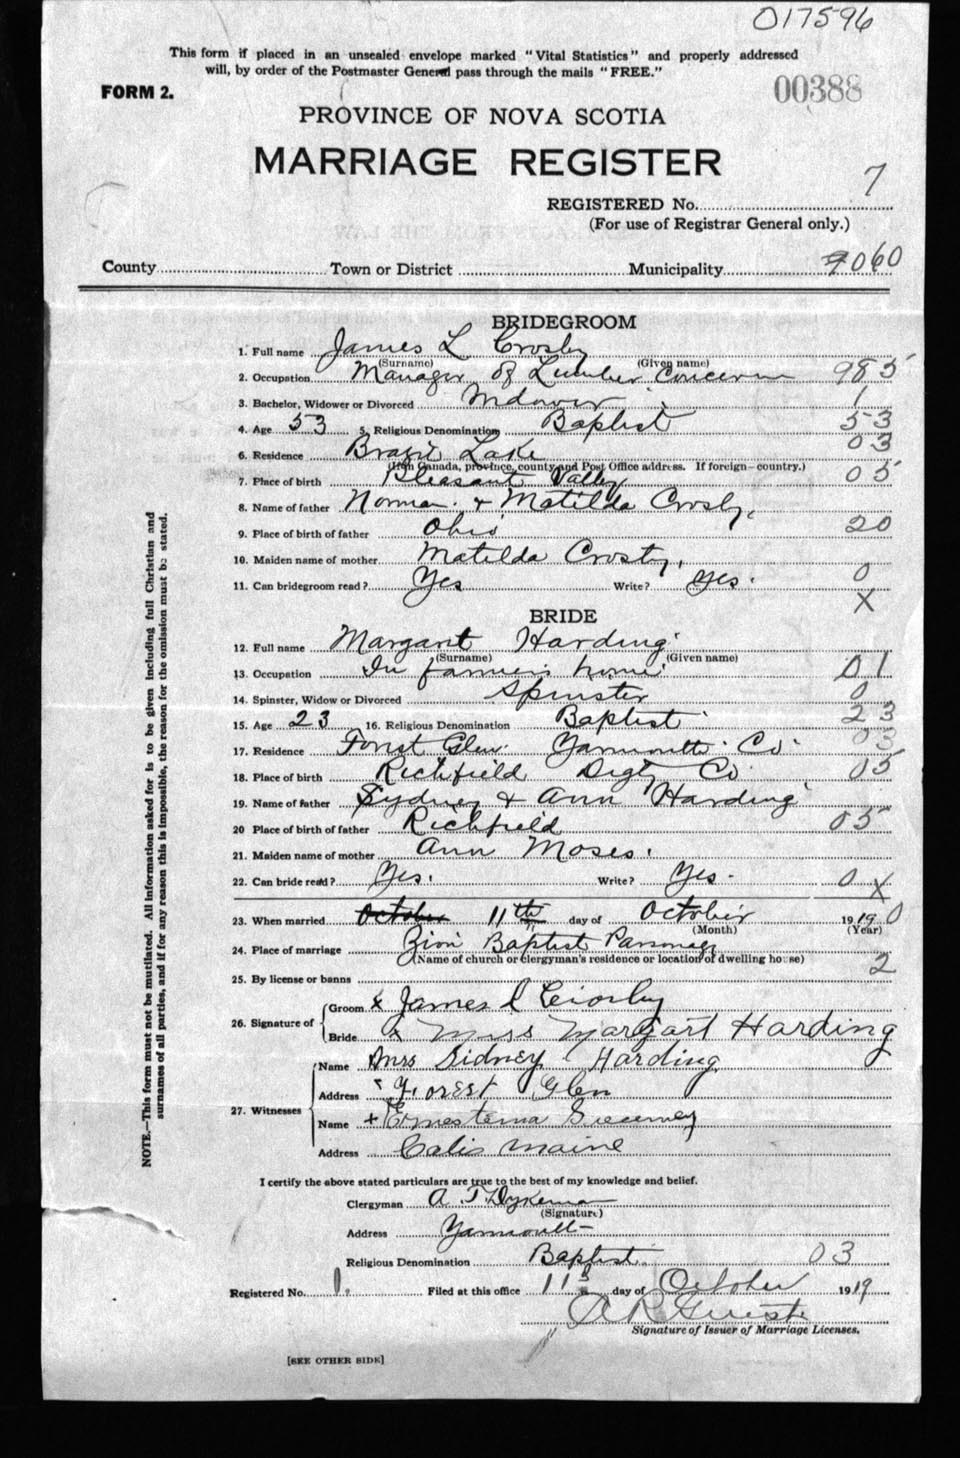 017596
This form if placed in an unsealed envelope marked "Vital Statistics" and properly addressed
will, by order of the Postmaster General pass through the mails "FREE."
FORM 2.
00388
PROVINCE OF NOVA SCOTIA
MARRIAGE REGISTER
7
REGISTERED No.
(For use of Registrar General only.)
County Town or District Municipality 9060
BRIDEGROOM
1. Full name James L Crosby
(Surname) (Given name)
2. Occupation Manager of Lumber Concern 985
3. Bachelor, Widower or Divorced Widower 1
4. Age 53 5. Religious Denomination Baptist 53
6. Residence Brazil Lake 03
(If in Canada, province, county and Post Office address. If foreign—country.)
7. Place of birth Pleasant Valley 05
8. Name of father Norman & Matilda Crosby,
9. Place of birth of father Ohio 20
10. Maiden name of mother Matilda Crosby,
11. Can bridegroom read? Yes Write? yes. 0
X
BRIDE
12. Full name Margaret Harding
(Surname) (Given name)
13. Occupation In farmers home 01
14. Spinster, Widow or Divorced Spinster 0
15. Age 23 16. Religious Denomination Baptist 23
17. Residence Forest Glen. Yarmouth Co. 03
18. Place of birth Richfield Digby Co 05
19. Name of father Sydney & Ann Harding
20 Place of birth of father Richfield 05
21. Maiden name of mother Ann Moses.
22. Can bride read? Yes. Write? Yes. 0 X
23. When married October 11th day of October 1919 0
(Month) (Year)
24. Place of marriage Zion Baptist Parsonage
(Name of church or clergyman's residence or location of dwelling house) 2
25. By license or banns
26. Signature of Groom x James L Crosby
Bride x Miss Margart Harding
27. Witnesses Name Mrs Sidney Harding
Address Forest Glen
Name + Ernestema
Address Calis Maine
I certify the above stated particulars are true to the best of my knowledge and belief.
Clergyman A. T. Dykeman
(Signature)
Address Yarmouth
Religious Denomination Baptist 03
Registered No. Filed at this office 11 day of October 1919
Signature of Issuer of Marriage Licenses.
[SEE OTHER SIDE]
NOTE.—This form must not be mutilated. All information asked for is to be given including full Christian and
surnames of all parties, and if for any reason this is impossible, the reason for the omission must be stated.